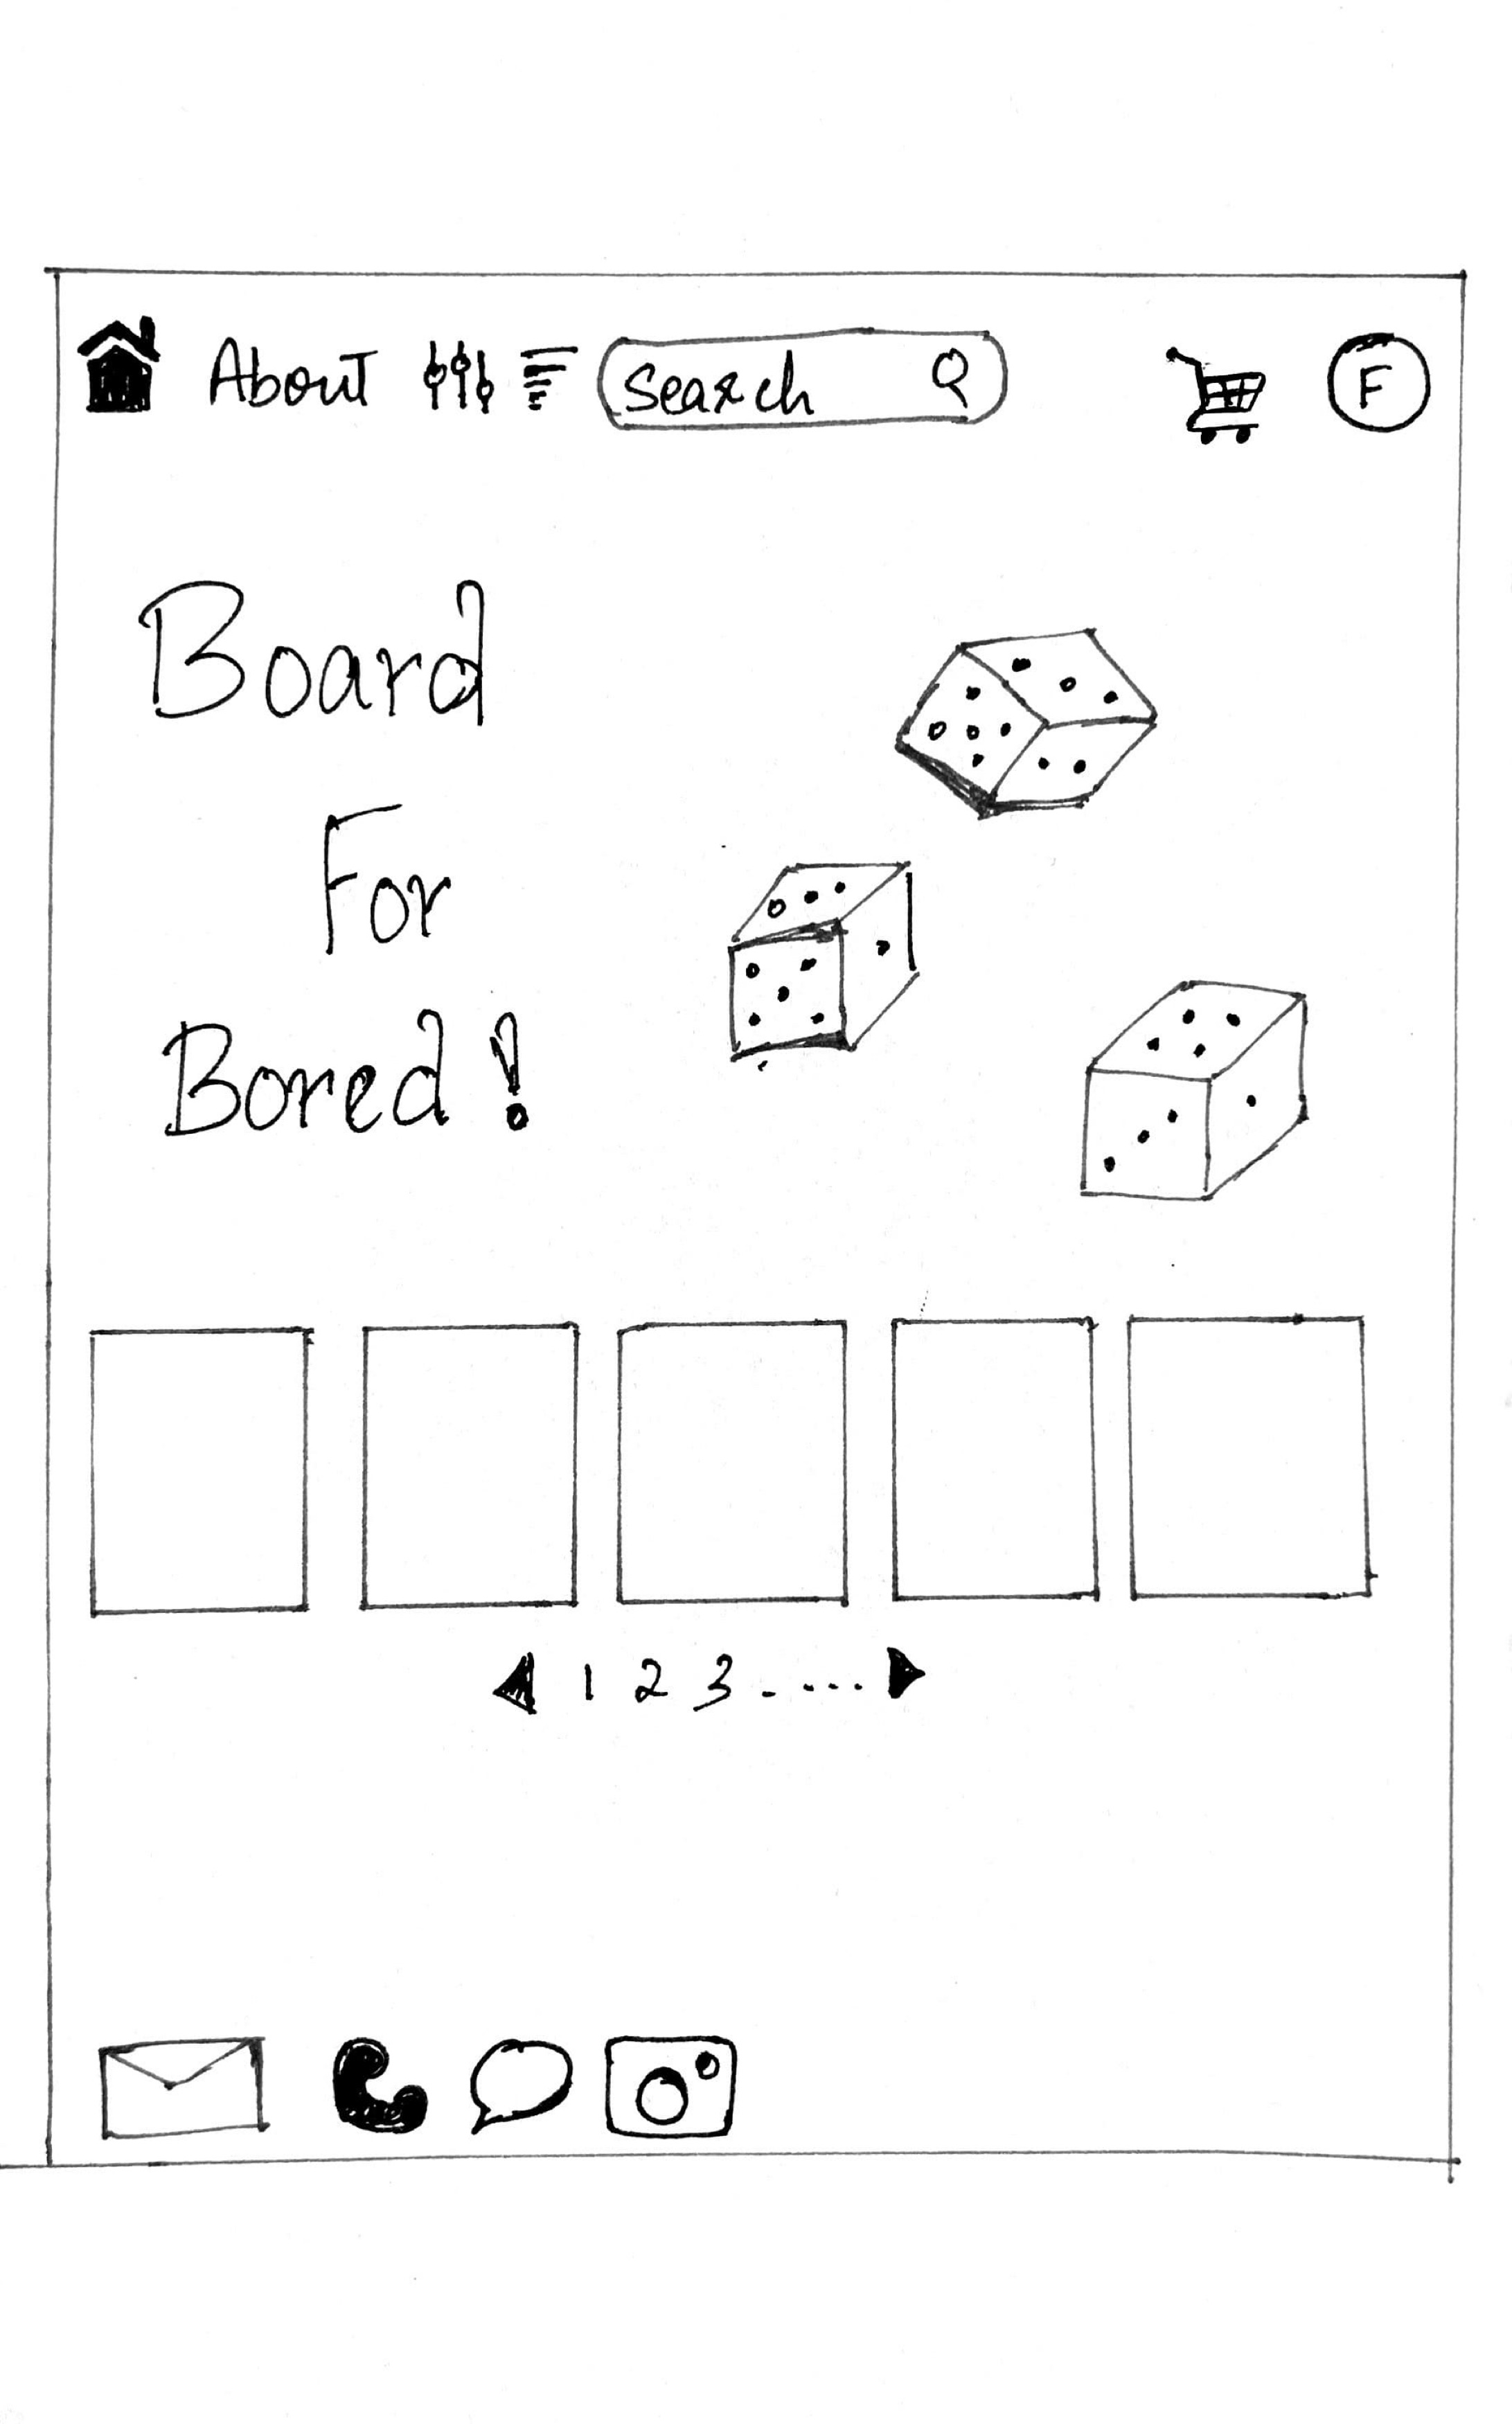 About search F
Board
For
Bored!
1 2 3 .....